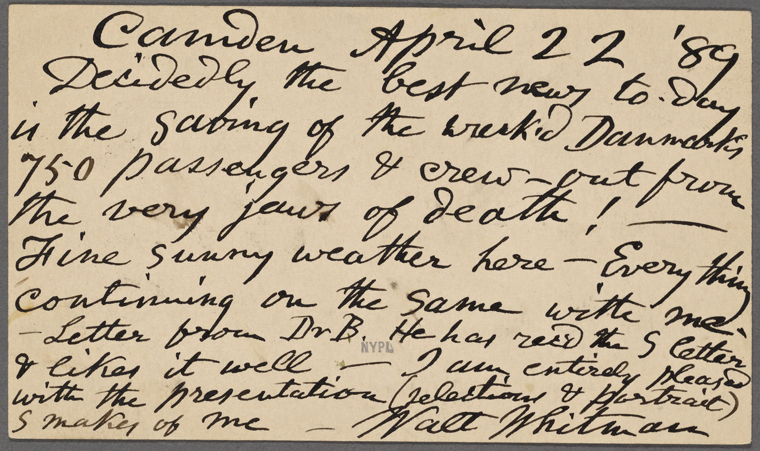 Camden April 22 '89
Decidedly the best news to-day
is the saving of the wreck'd Danmark's
750 passengers & crew - out from
the very jaws of death! —
Fine sunny weather here - Every thing
continuing on the same with me
- Letter from Dr B. He has rec'd the S letter
NYPL
& likes it well — I am entirely pleased
with the presentation (selections & portrait)
S makes of me — Walt Whitman